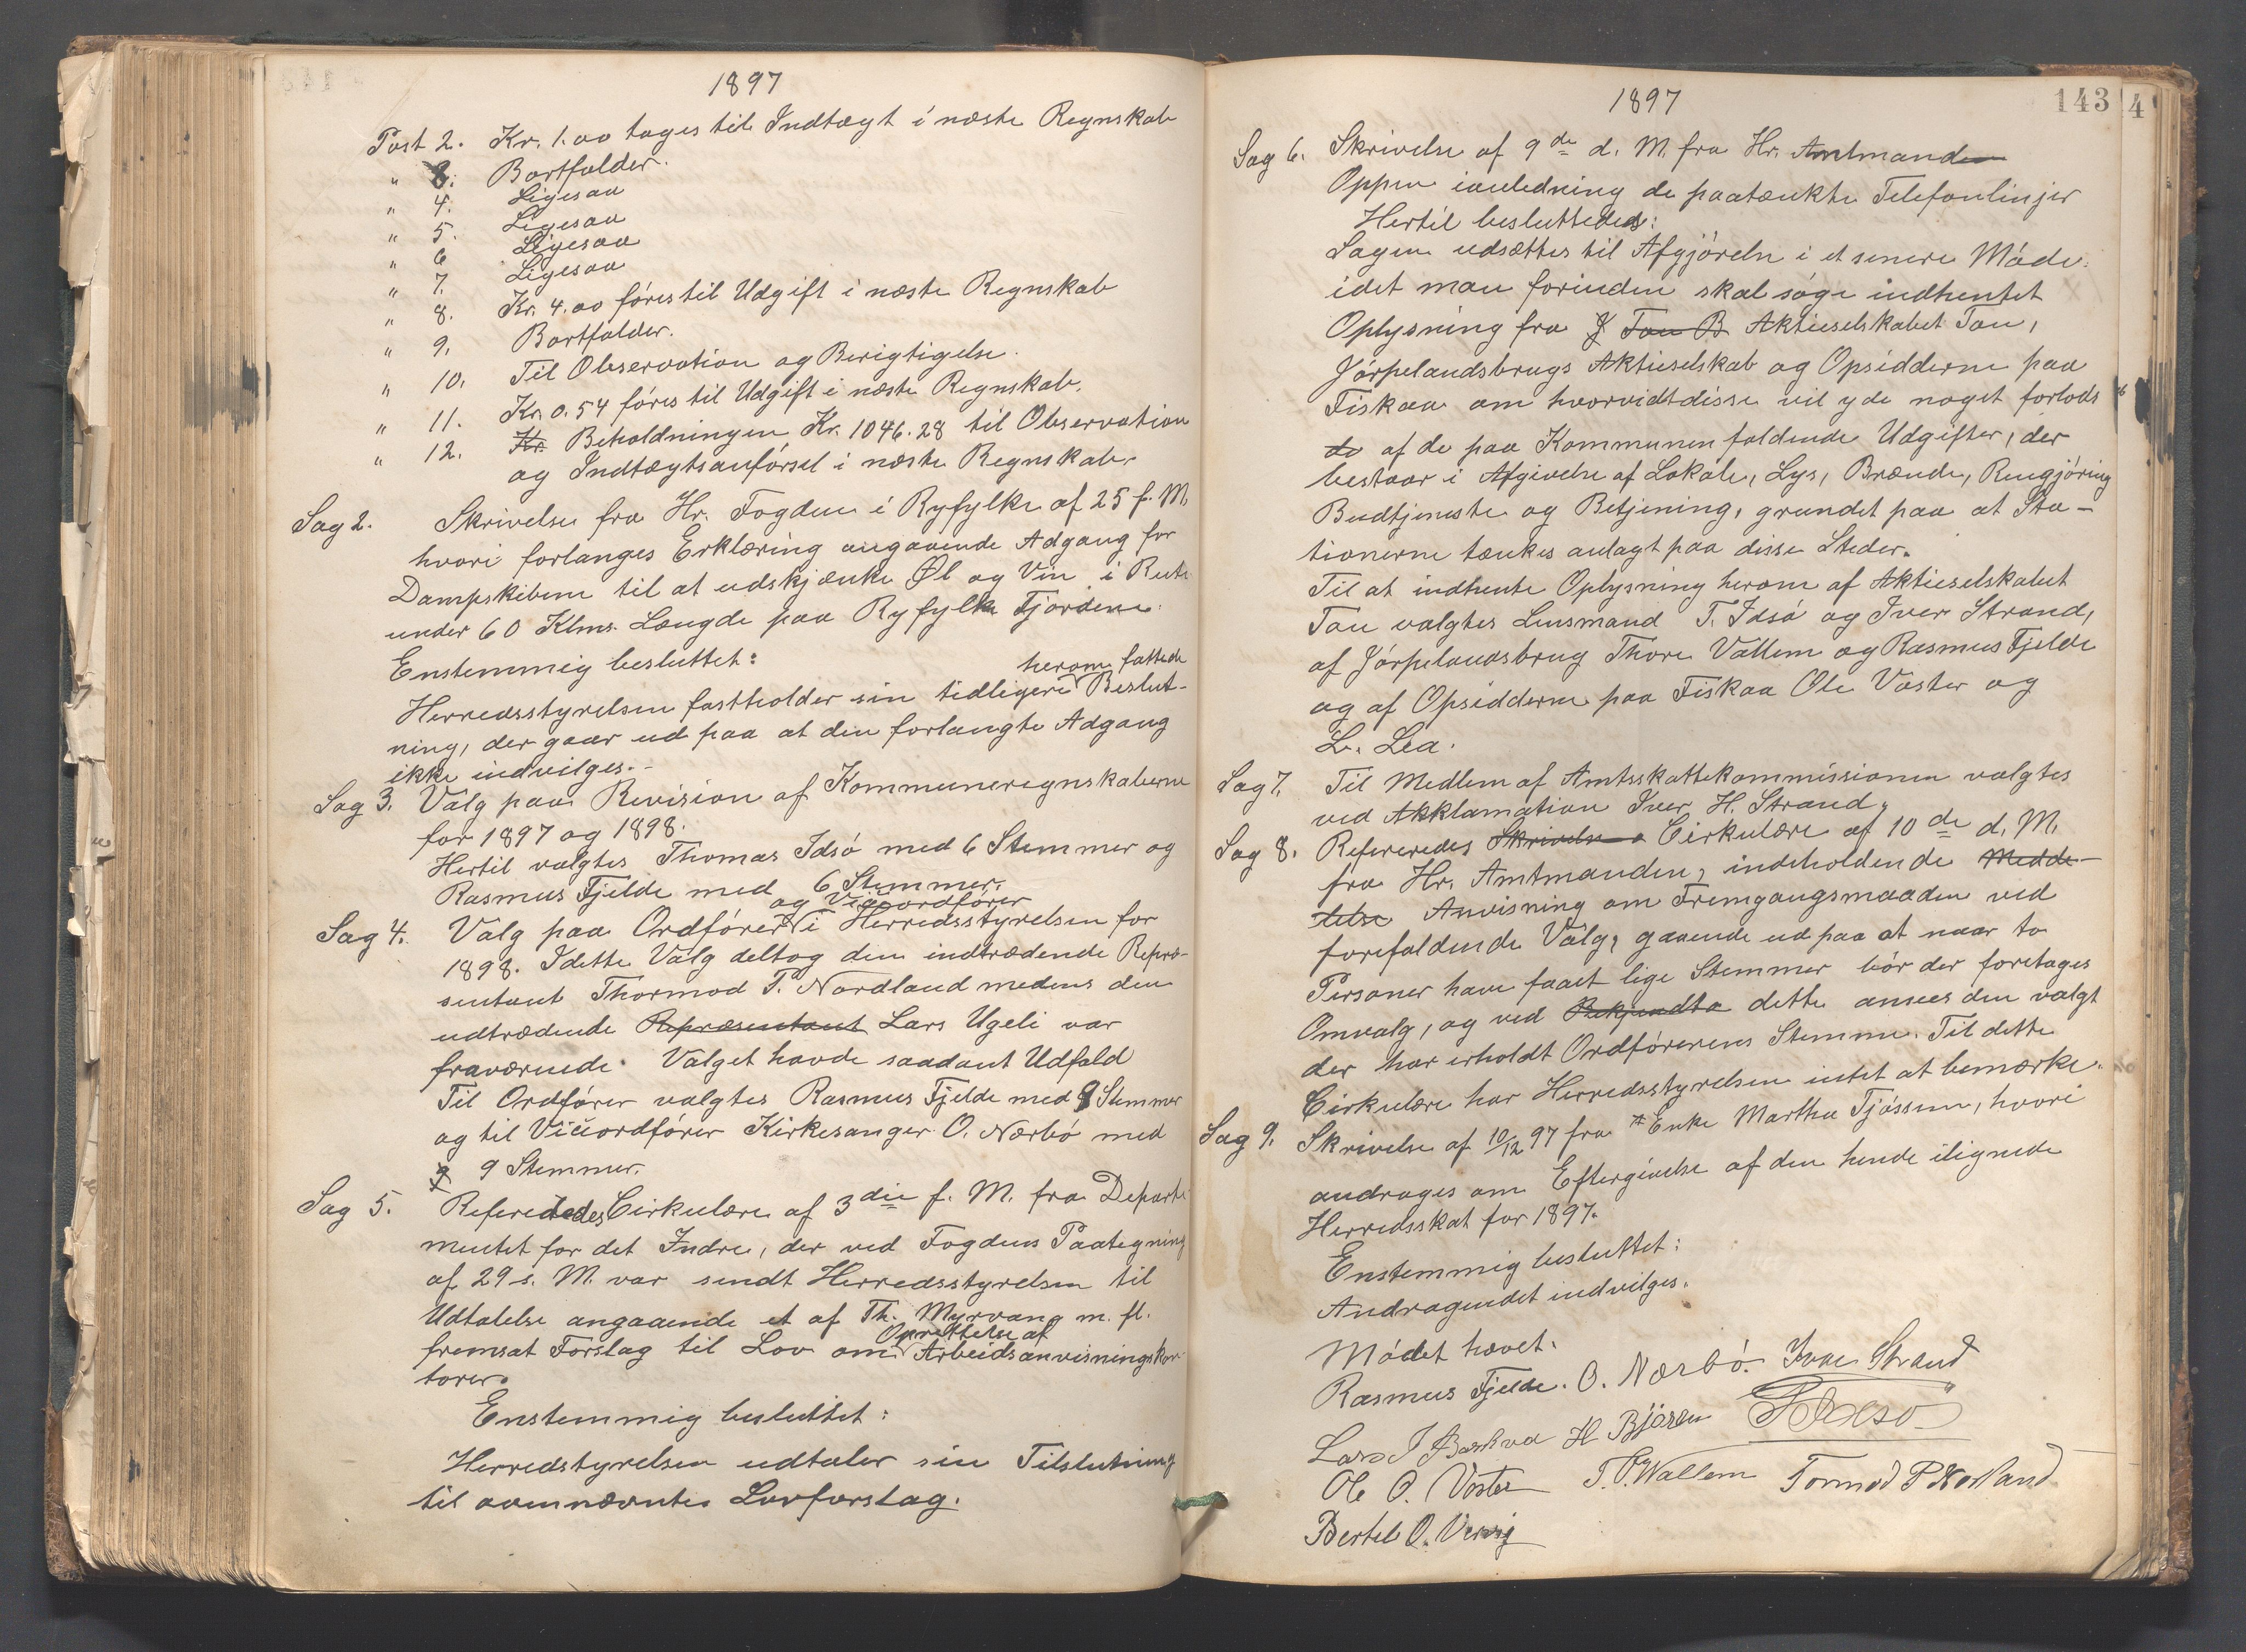 1897
Post 2. Kr. 1.00 tages til Indtægt i næste Regnskab
" 3. Bortfalder.
" 4. Ligesaa
" 5. Ligesaa
" 6 Ligesaa
" 7. Ligesaa
" 8. Kr. 4.00 föres til Udgift i næste Regnskab
" 9. Bortfalder.
" 10. Til Observation og Berigtigelse.
" 11. Kr. 0.54 föres til Udgift i næste Regnskab.
" 12. Kr. Beholdningen Kr. 1046.28 til Observation
og Indtægtsanförsel i næste Regnskab.
Sag 2. Skrivelse fra Hr. Fogden i Ryfylke af 25 f. M.
hvori forlanges Erklæring angaaende Adgang for
Dampskibene til at udskjænke Øl og Vin i Rute
under 60 Klms. Længde paa Ryfylke Fjordene.
Enstemmig besluttet:
Herredsstyrelsen fastholder sin tidligere herom fattede Beslut-
ning, der gaar ud paa at den forlangte Adgang
ikke indvilges.-
Sag 3. Valg paa Revision af Kommuneregnskaberne
for 1897 og 1898.
Hertil valgtes Thomas Idsö med 6 Stemmer og
Rasmus Fjelde med 6 Stemmer.
Sag 4. Valg paa Ordförer og Viceordförer i Herredsstyrelsen for
1898. I dette Valg deltog den indtrædende Repræ-
sentant Thormod P. Nordland medens den
udtrædende Repræsentant Lars Ugeli var
fraværende. Valget havde saadant Udfald
Til Ordförer valgtes Rasmus Fjelde med 9 Stemmer
og til Viceordförer Kirkesanger O. Nærbö med
9 Stemmer.
Sag 5. Refereredes Cirkulære af 3die f. M. fra Departe
mentet for det Indre, der ved Fogdens Paategning
af 29 s. M. var sendt Herredsstyrelsen til
Udtalelse angaaende et af Th. Myrvang m. fl.
fremsat Forslag til Lov om Oprettelse af Arbeidsanvisningskon-
torer.
Enstemmig besluttet:
Herredstyrelsen udtaler sin Tilslutning
til ovennævnte Lovforslag.
1897
143
4
Sag 6. Skrivelse af 9de d. M. fra Hr. Amtmanden
Oppen ianledning de paatænkte Telefonlinjer
Hertil besluttedes:
Sagen udsættes til Afgjörelse i et senere Möde,
idet man forinden skal söge indhentet
Oplysning fra J Tau B Aktieselskabet Tau,
Jörpelandsbrugs Aktieselskab og Opsidderne paa
Fiskaa om hvorvidt disse vil yde noget forlods
de af de paa Kommunen faldende Udgifter, der
bestaar i Afgivelse af Lokale, Lys, Brænde, Rengjöring
Budtjeneste og Betjening, grundet paa at Sta-
tionerne tænkes anlagt paa disse Steder.
Til at indhente Oplysning herom af Aktieselskabet
Tau valgtes Lensmand T. Idsö og Iver Strand,
af Jörpelandsbrug Thore Vallem og Rasmus Fjelde
og af Opsidderne paa Fiskaa Ole Voster og
L. Lea.
Sag 7. Til Medlem af Amtsskattekommissionen valgtes
ved Akklamation Iver H. Strand.
Sag 8. Refereredes Skrivelse a Cirkulære af 10de d. M.
fra Hr. Amtmanden, indeholdende Medde-
lelse Anvisning om Fremgangsmaaden ved
forefaldende Valg, gaaende ud paa at naar to
Personer have faaet lige Stemmer bör der foretages
Omvalg, og ved Bekjendta dette ansees den valgt
der har erholdt Ordförerens Stemme. Til dette
Cirkulære har Herredsstyrelsen intet at bemærke.
Sag 9. Skrivelse af 10/12 97 fra Enke Martha Tjössem, hvori
andrages om Eftergivelse af den hende ilignede
Herredsskat for 1897.
Enstemmig besluttet:
Andragendet indvilges.
Mödet hævet.
Rasmus Fjelde. O. Nærbö. Iver Strand
Lars J H. Björen
Ole O. Voster T. P. Wallem Tormod P Norland
Bertel O.